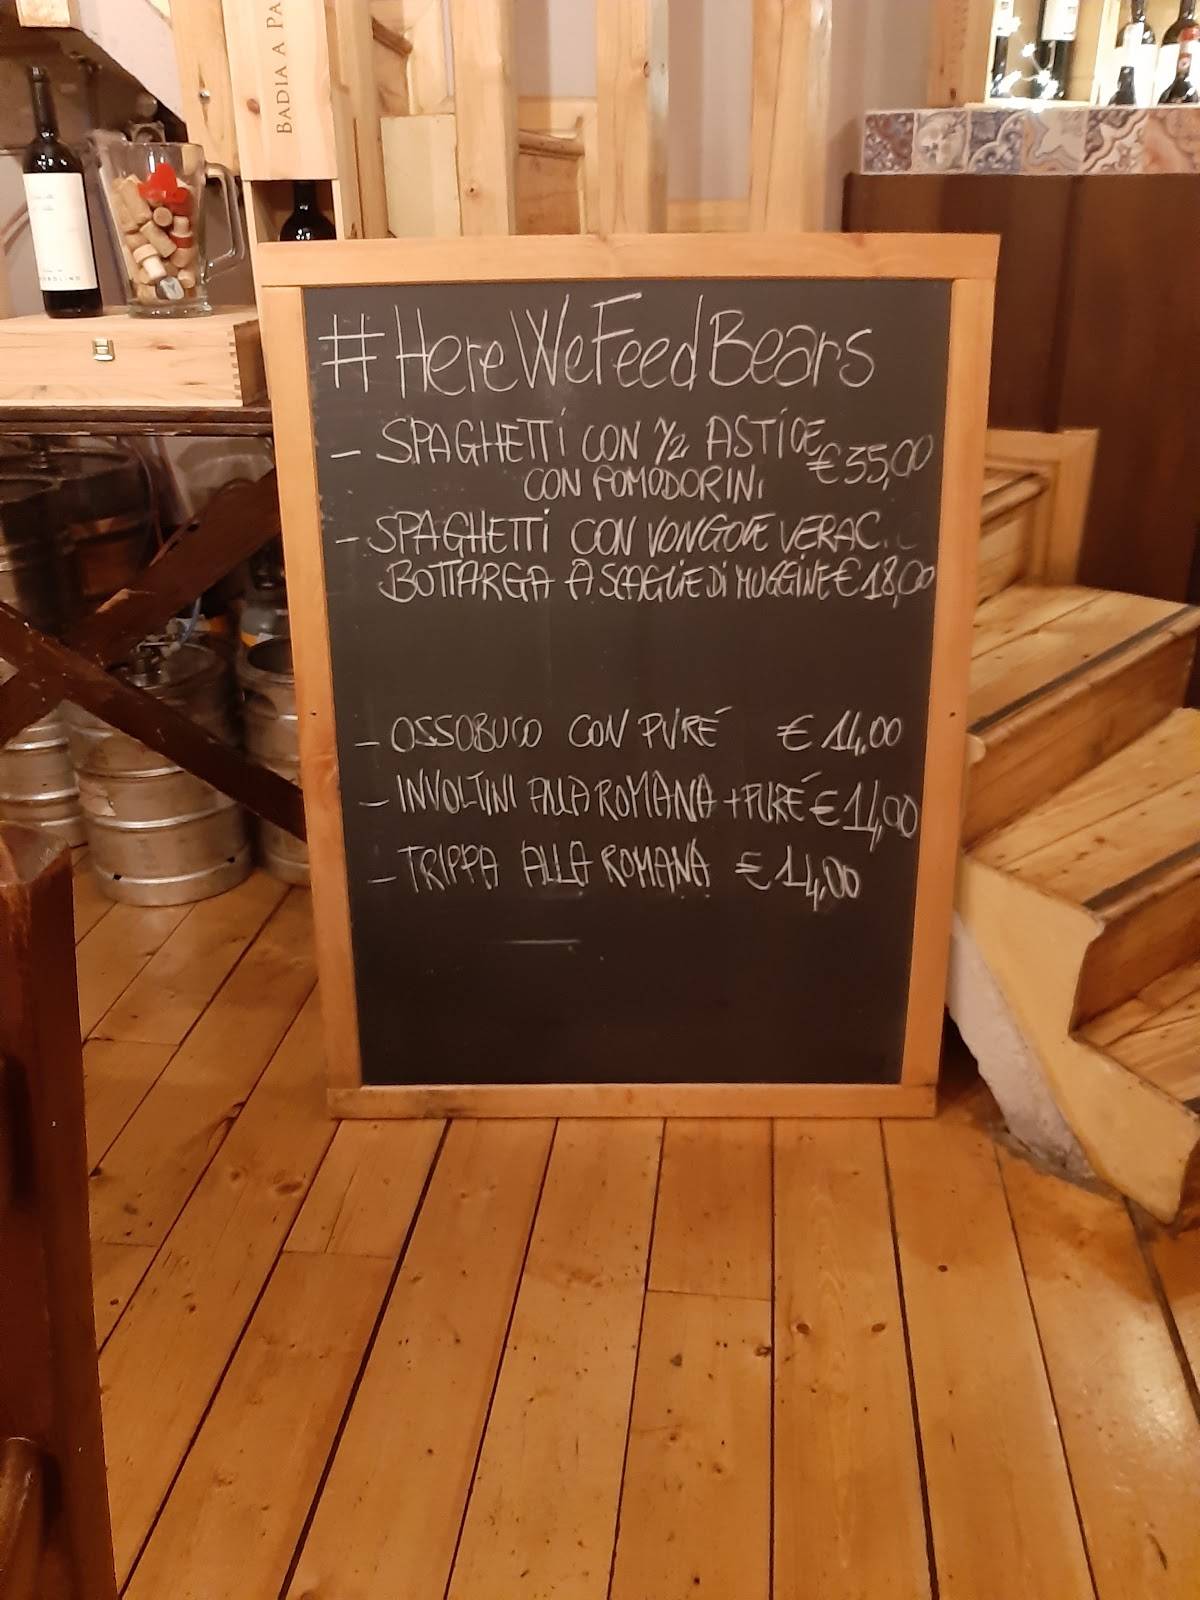 BADIA A PA
#HereWeFeedBears
- SPAGHETTI CON 1/2 ASTICE €35,00
CON POMODORINI
- SPAGHETTI CON VONGOLE VERAC
BOTTARGA A SCAGLIE DI MUGGINE €18,00
- OSSOBUCO CON PURÉ €14,00
- INVOLTINI ALLA ROMANA + PURÉ €14,00
- TRIPPA ALLA ROMANA €14,00